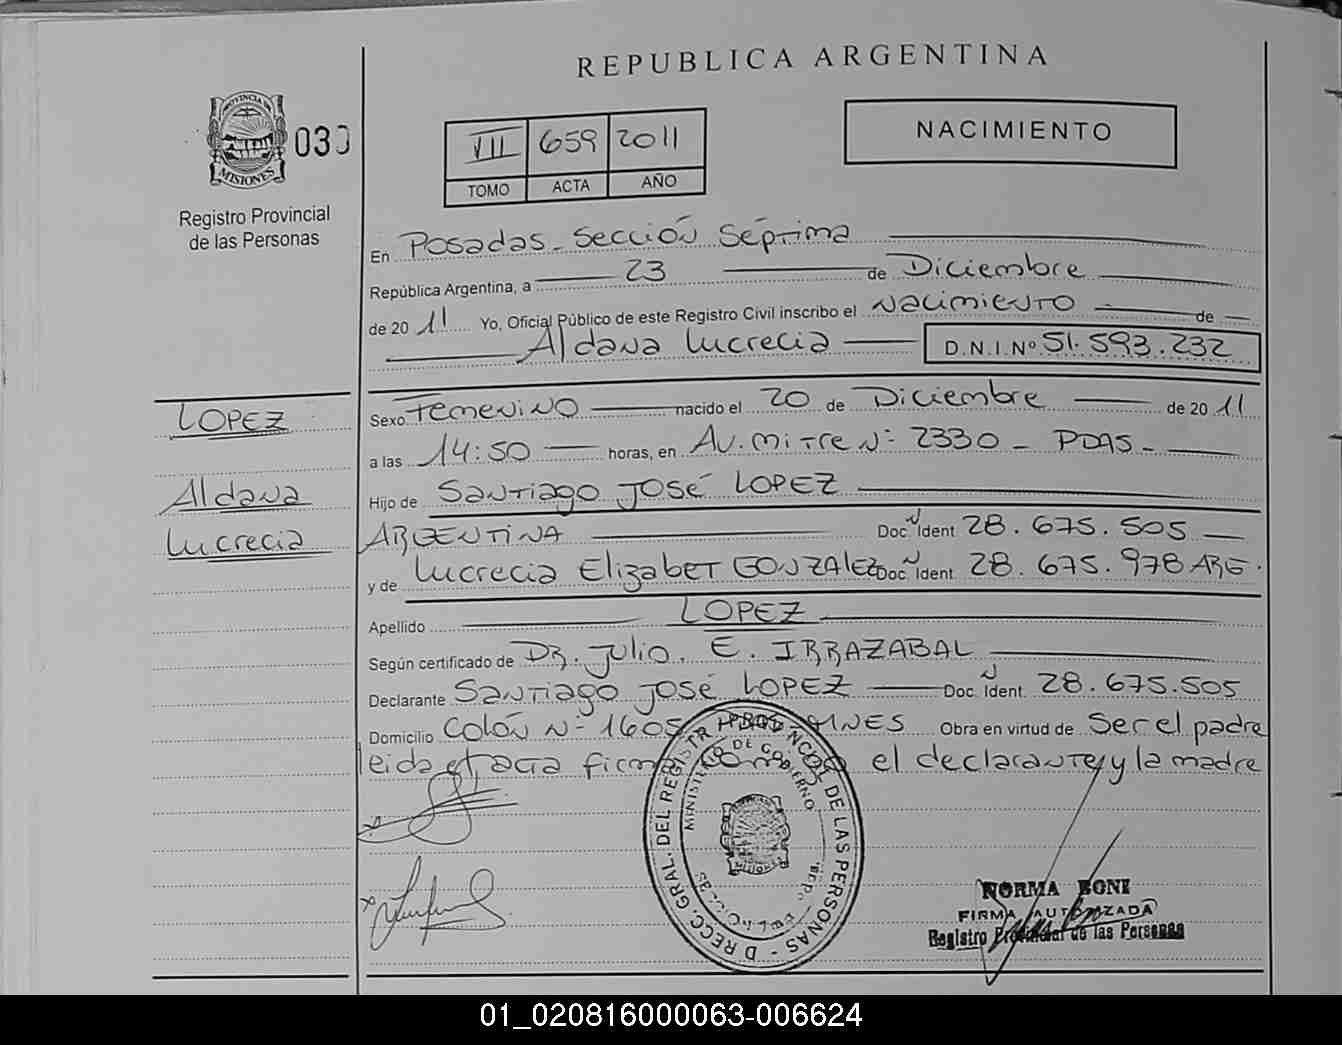 REPUBLICA ARGENTINA
PROVINCIA DE
MISIONES
030
Registro Provincial
de las Personas
VIII 659 2011
TOMO ACTA AÑO
NACIMIENTO
En Posadas - Sección Séptima
República Argentina, a 23 de Diciembre
de 2011 Yo, Oficial Público de este Registro Civil inscribo el Nacimiento de
Aldana Lucrecia D.N.I.Nº 51.593.232
LOPEZ
Aldana
Lucrecia
Sexo Femenino nacido el 20 de Diciembre de 2011
a las 14:50 horas, en Av. Mitre Nº 2330 - PDAS -
Hijo de Santiago José LOPEZ
ARGENTINA Doc. Ident 28.675.505
y de Lucrecia Elizabet GONZALEZ Doc. Ident. 28.675.978 ARG.
Apellido LOPEZ
Según certificado de Dr. Julio. E. IRRAZABAL
Declarante Santiago José LOPEZ Doc. Ident. 28.675.505
Domicilio Colón Nº 1605 Obra en virtud de Ser el padre
leida el acta el declarante y la madre
MINISTERIO DE GOBIERNO
NORMA BONI
FIRMA AUTORIZADA
Registro Provincial de las Personas
01_020816000063-006624